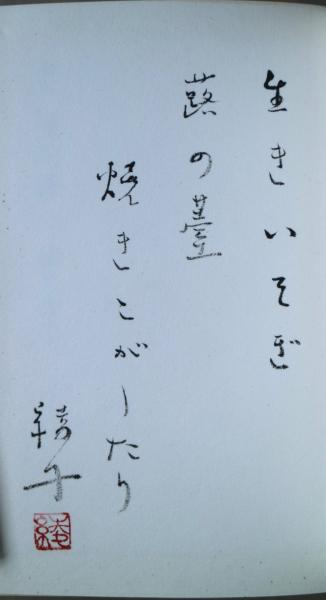 生きいそぎ
蕗の薹
焼きこがしたり